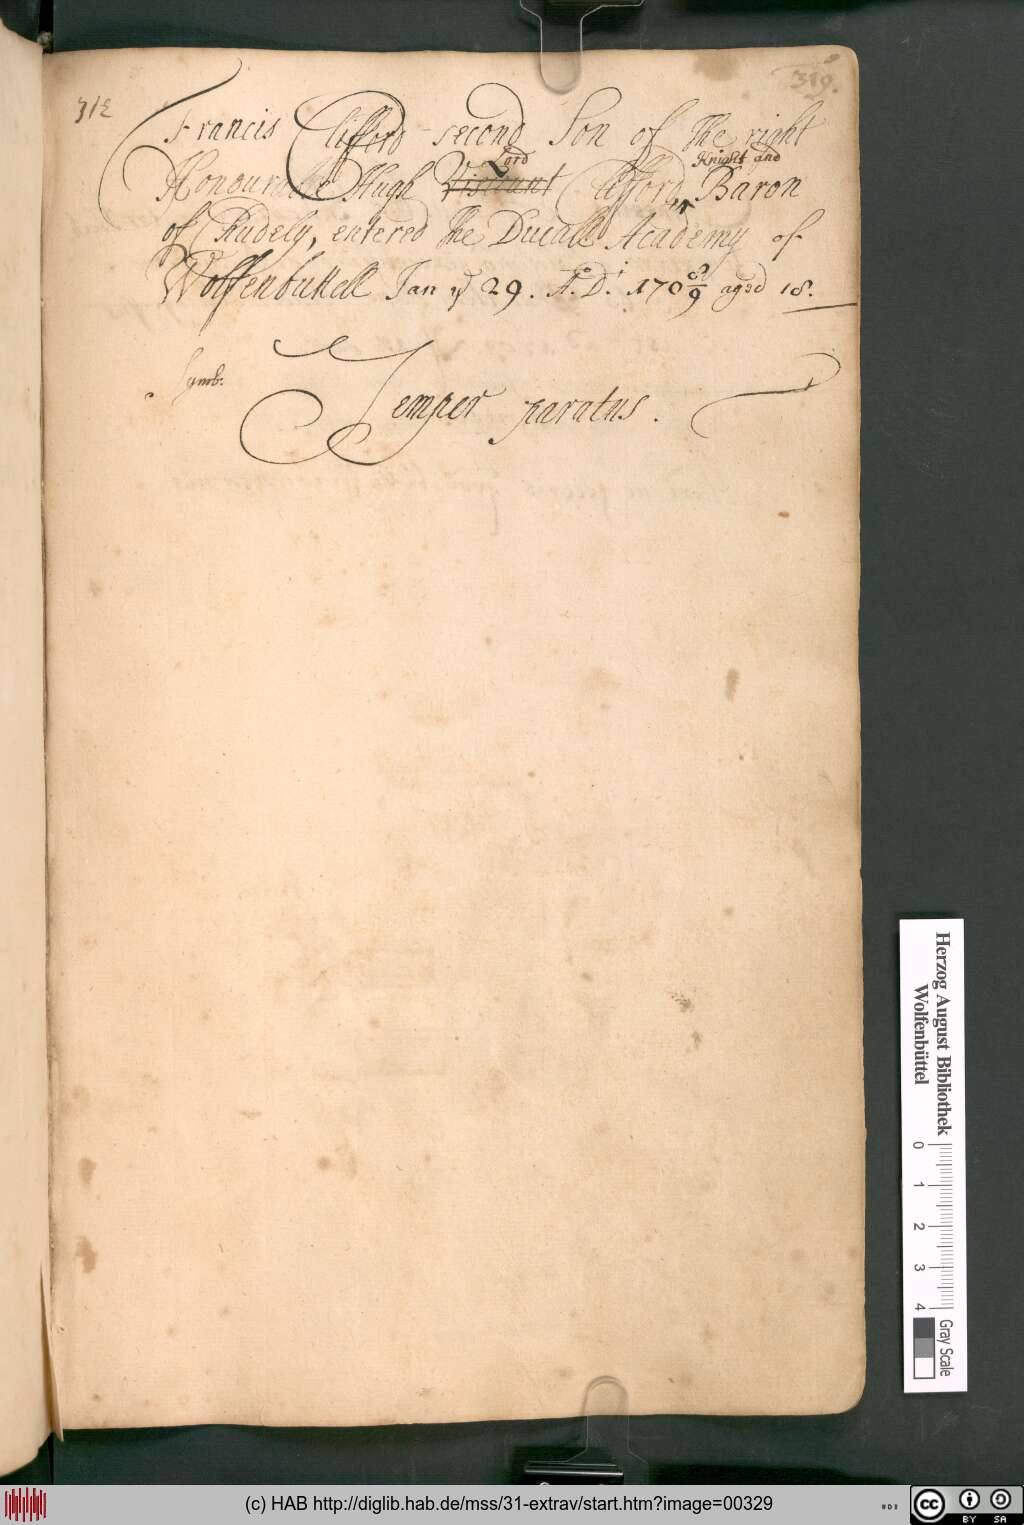 319.
312
Francis Clifford second Son of the right
Lord Knight and
Honourable Hugh Viscunt Clifford, Baron
of Chudely, entered the Ducall Academy of
Wolffenbuttell Jan ye 29. Ao. Di. 170 8/9 aged 18.
Symb.
Semper paratus.
Herzog August Bibliothek
Wolfenbüttel
0 1 2 3 4
Gray Scale
(c) HAB http://diglib.hab.de/mss/31-extrav/start.htm?image=00329
cc BY SA